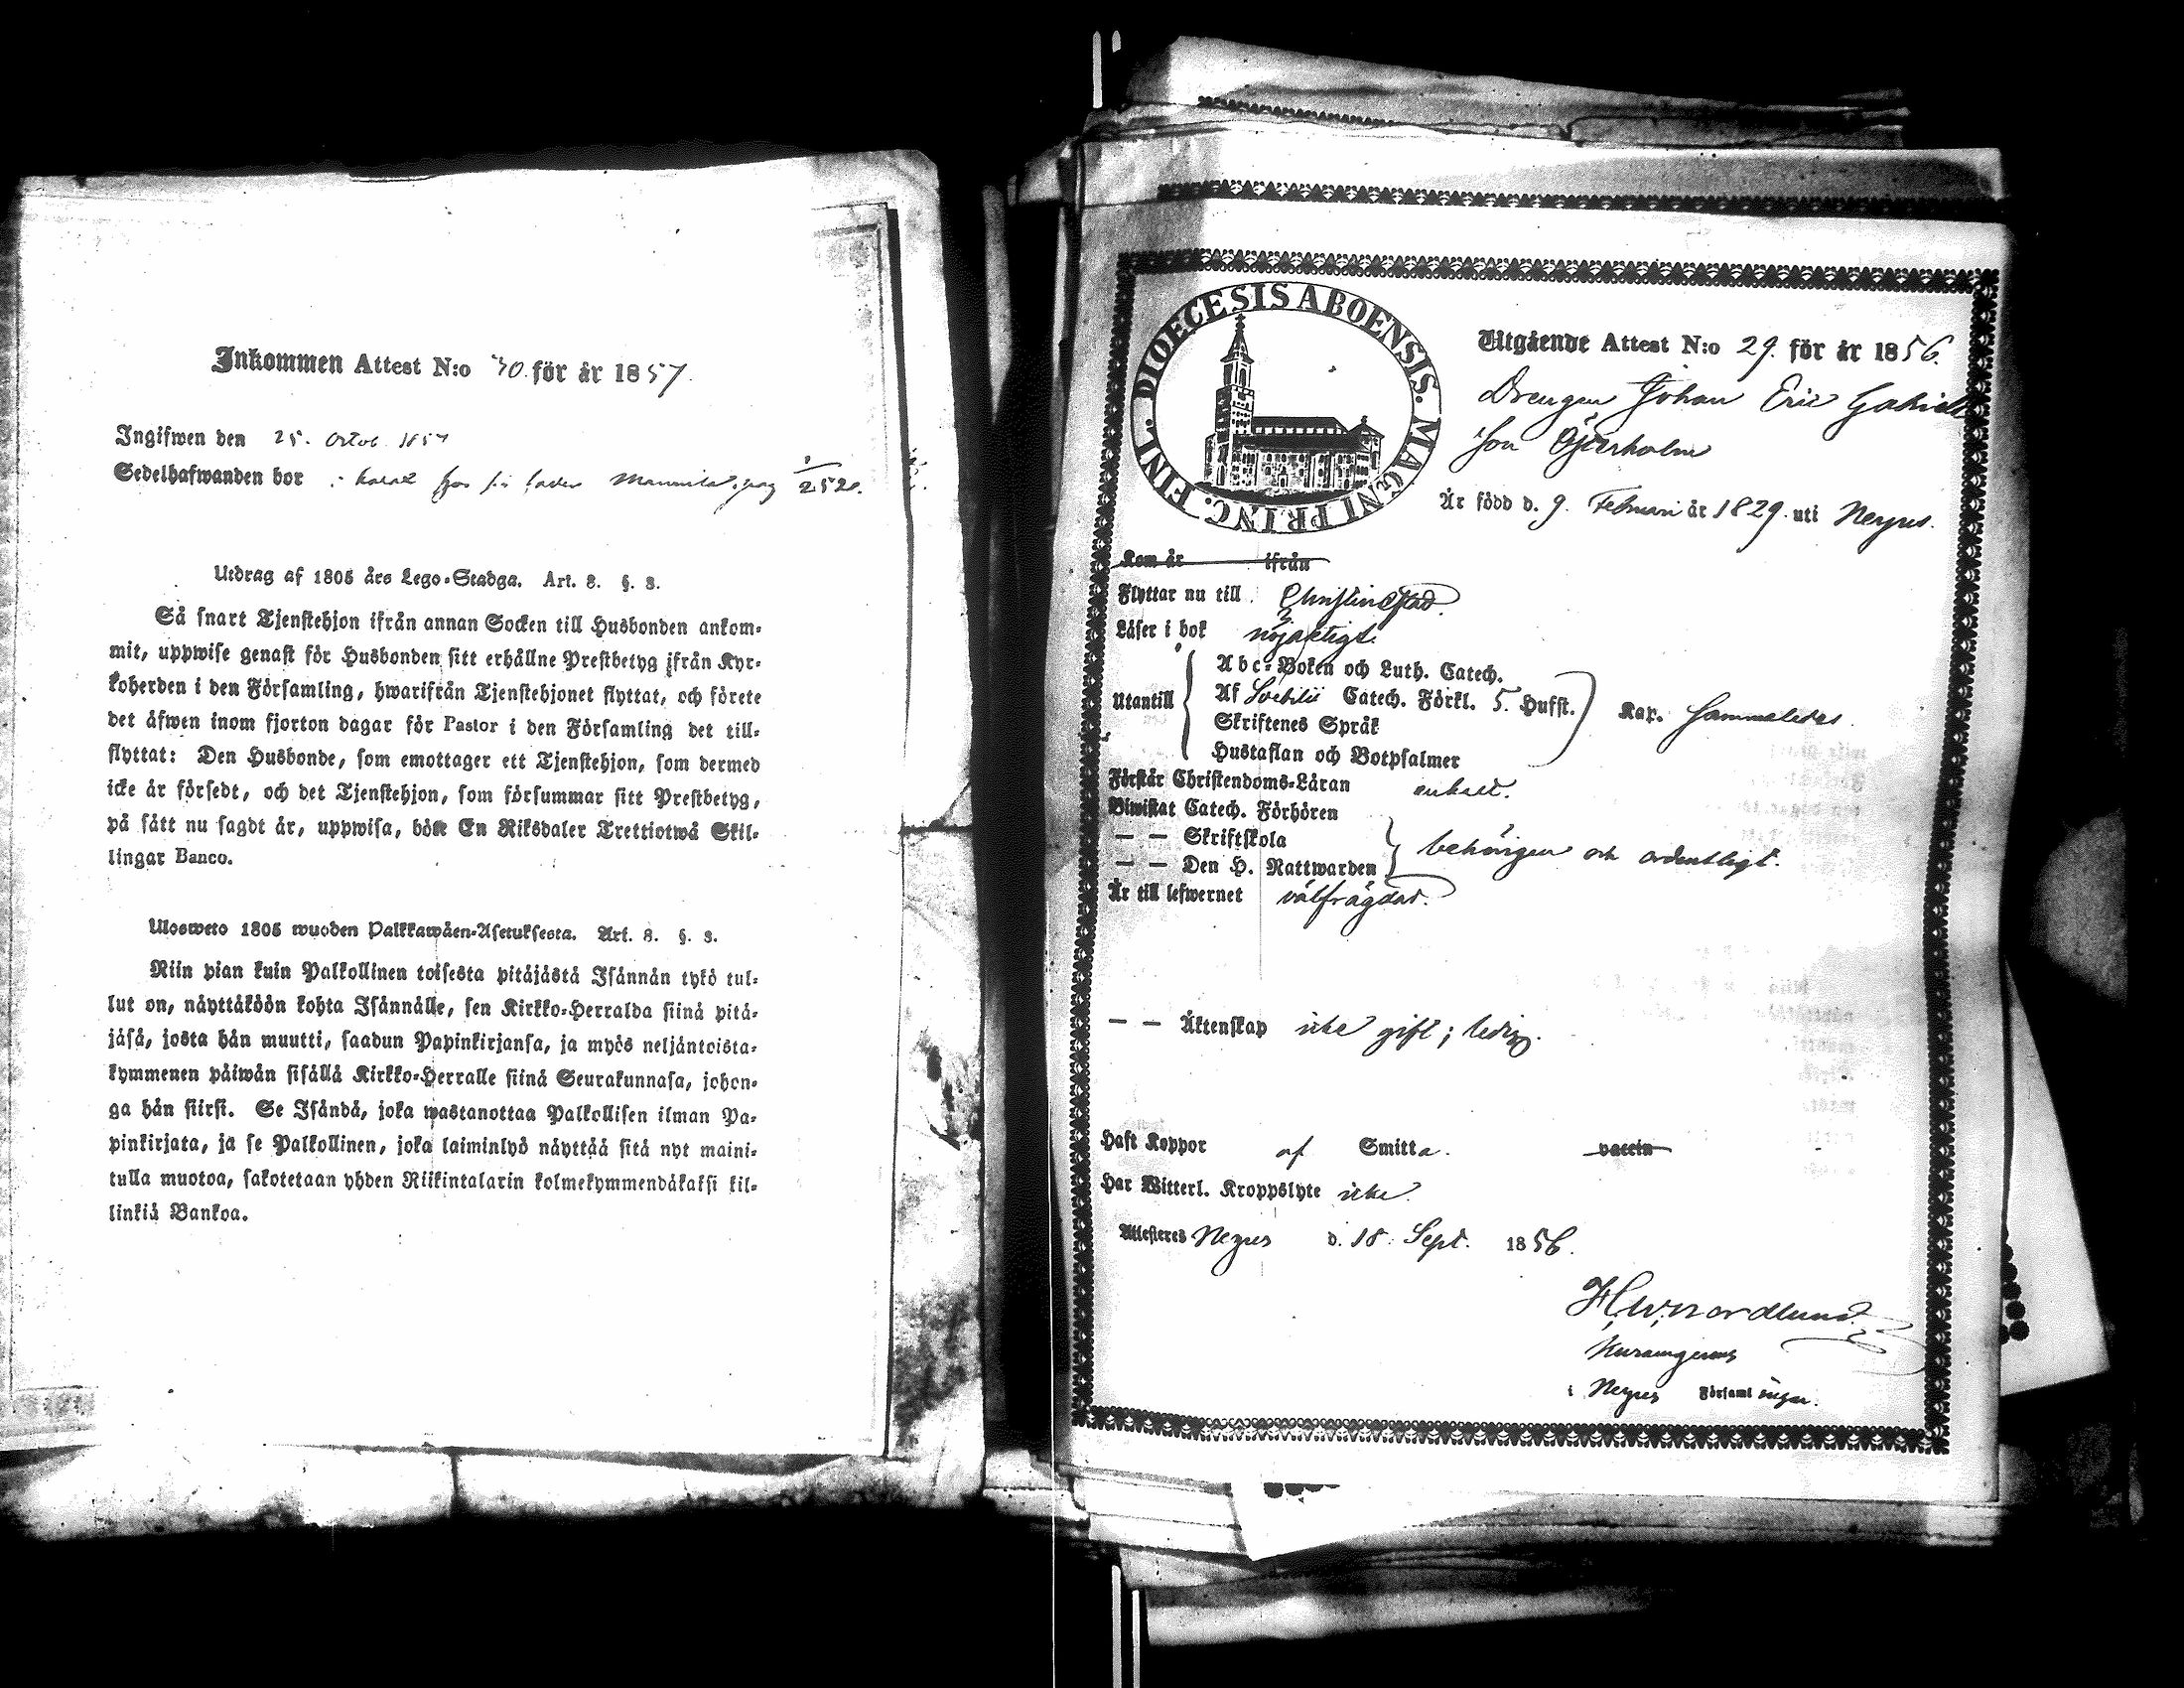 Inkommen Attest N:o 30. för år 1857.
Ingifwen den 25. Octob. 1857
Sedelhafwanden bor pag 252.
Utdrag af 1805 års Lego-Stadga. Art. 8. §. 3.
Så snart Tjenstehjon ifrån annan Socken till Husbonden ankom-
mit, uppwise genast för Husbonden sitt erhållne Prestbetyg ifrån Kyr-
koherden i den Församling, hwarifrån Tjenstehjonet flyttat, och förete
det äfwen inom fjorton dagar för Pastor i den Församling det till-
flyttat: Den Husbonde, som emottager ett Tjenstehjon, som dermed
icke är försedt, och det Tjenstehjon, som försummar sitt Prestbetyg,
på sätt nu sagdt är, uppwisa, böte En Riksdaler Trettiotwå Skil-
lingar Banco.
Ulosweto 1805 wuoden Palkkawäen-Asetuksesta. Art. 8. §. 3.
Niin pian kuin Palkollinen toisesta pitäjästä Isännän tykö tul-
lut on, näyttäköön kohta Isännälle, sen Kirkko-Herralda siinä pitä-
jäsä, josta hän muutti, saadun Papinkirjansa, ja myös neljäntoista-
kymmenen päiwän sisällä Kirkko-Herralle siinä Seurakunnasa, johon-
ga hän siirsi. Se Isändä, joka wastanottaa Palkollisen ilman Pa-
pinkirjata, ja se Palkollinen, joka laiminlyö näyttää sitä nyt maini-
tulla muotoa, sakotetaan yhden Riikintalarin kolmekymmendäkaksi kil-
linkiä Bankoa.
DIOECESIS ABOENSIS. MAGNI PRINC. FINL.
Utgående Attest N:o 29. för år 1856.
Drengen Johan Eric Gabriels
son Österholm
Är född d. 9. Februari år 1829. uti Nerpes.
Kom år ifrån
Flyttar nu till Christinestad.
Läser i bok nöjaktigt.
Utantill
Abc-Boken och Luth. Catech.
Af Svebilii Catech. Förkl. 5. Hufst.
Skriftenes Språk
Hustaflan och Botpsalmer
Kap. Sammaledes.
Förstår Christendoms-Läran enkelt.
Biwistat Catech. Förhören
— — Skriftskola
— — Den H. Nattwarden
behörigen och ordentligt.
Är till lefwernet välfrägdad.
— — Äktenskap icke gift; ledig.
Haft Koppor af Smitta. vaccin
Har Witterl. Kroppslyte icke.
Attesteres Nerpes d. 18. Sept. 1856.
H. W. Nordlund
i Nerpes Församlingar.